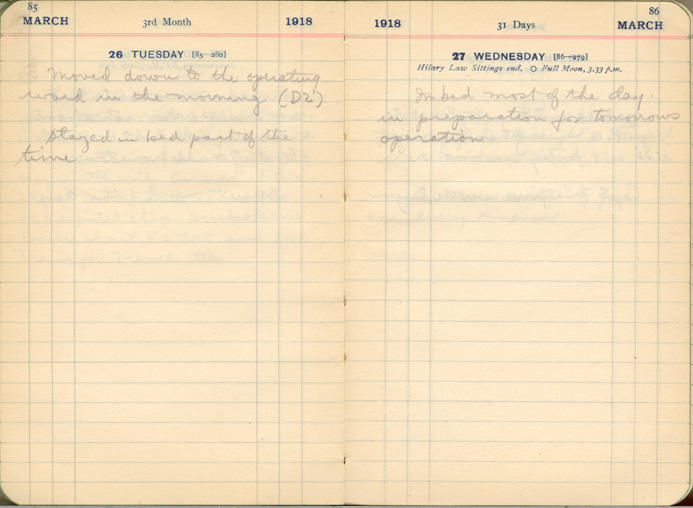 85
MARCH 3rd Month 1918
26 TUESDAY [85-280]
Moved down to the operating
ward in the morning (D2)
Stayed in bed part of the
time
86
1918 31 Days MARCH
27 WEDNESDAY [86-279]
Hilary Law Sittings end. O Full Moon, 3.33 p.m.
In bed most of the day.
in preparation for tomorrows
operation